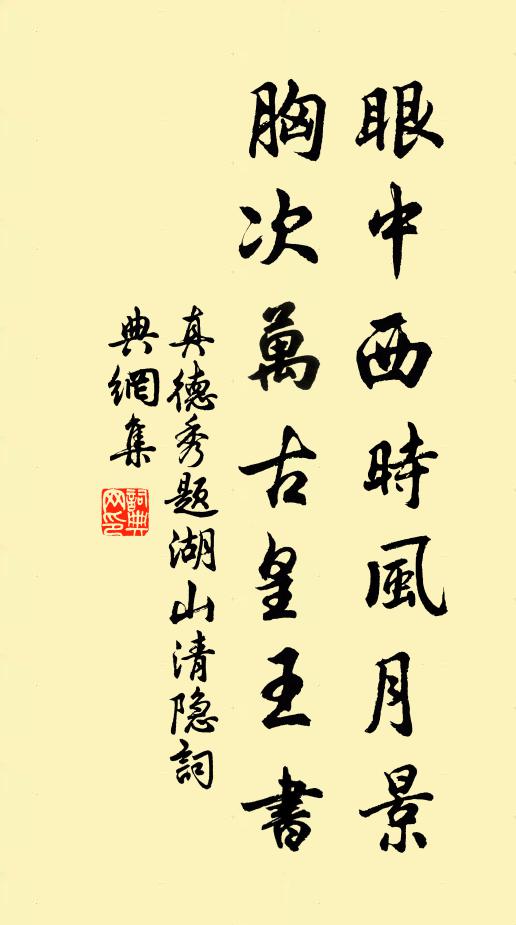 眼中西時風月景
胸次萬古皇王書
真德秀题湖山清隐詞
典網集
詞典網印